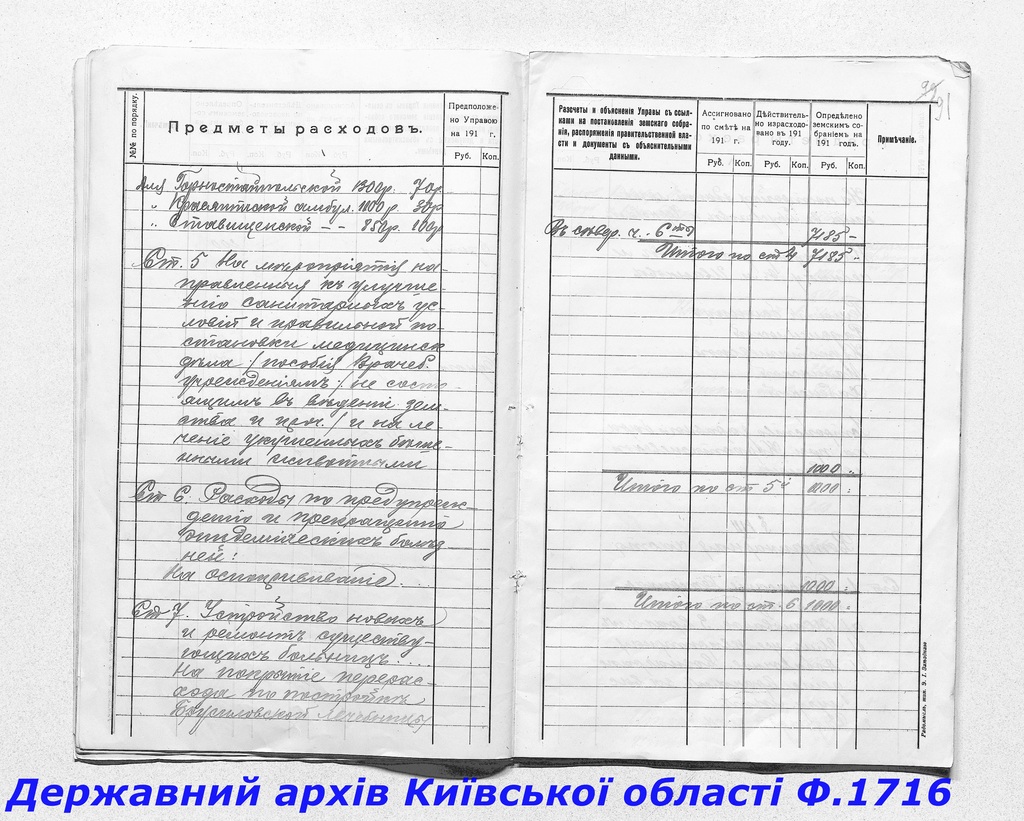 №№ по порядку.
Предметы расходовъ.
Предположе-
но Управою
на 191 г.
Руб. Коп.
Для Горностайпольской 1300р. 70р.
„ Красятичской амбул. 1100р. 30р
„ Ставищенской – – 850р. 100р
Ст. 5 На мѣропріятія на-
правленныя къ улучше-
нію санитарныхъ ус-
ловій и правильной по-
становки медицинск
дѣла /пособія врачеб.
учрежденіямъ: не состо
ящимъ въ вѣденіи зем-
ства и проч./ и на ле-
ченіе укушенныхъ бѣше-
нными животными
Ст 6. Расходы по предупреж-
денію и прекращенію
эпидемическихъ болѣз
ней:
На оспопрививаніе...
Ст 7. Устройство новыхъ
и ремонтъ существу-
ющихъ больницъ....
На покрытіе перерас-
хода по постройкѣ
Брусиловской лечебницы
91
Разсчеты и объясненія Управы съ ссыл-
ками на постановленія земскаго собра-
нія, распоряженія правительственной влас-
ти и документы съ объяснительными
данными.
Ассигновано
по смѣтѣ на
191 г.
Дѣйствитель-
но израсходо-
вано въ 191
году.
Опредѣлено
земскимъ со-
браніемъ на
191 годъ.
Примѣчаніе.
Руб. Коп. Руб. Коп. Руб. Коп.
6 7185 –
Итого по ст 4 7185 –
1000 „
Итого по ст 5й 1000 „
1000 „
Итого по ст. 6 1000 „
Державний архів Київської області Ф.1716